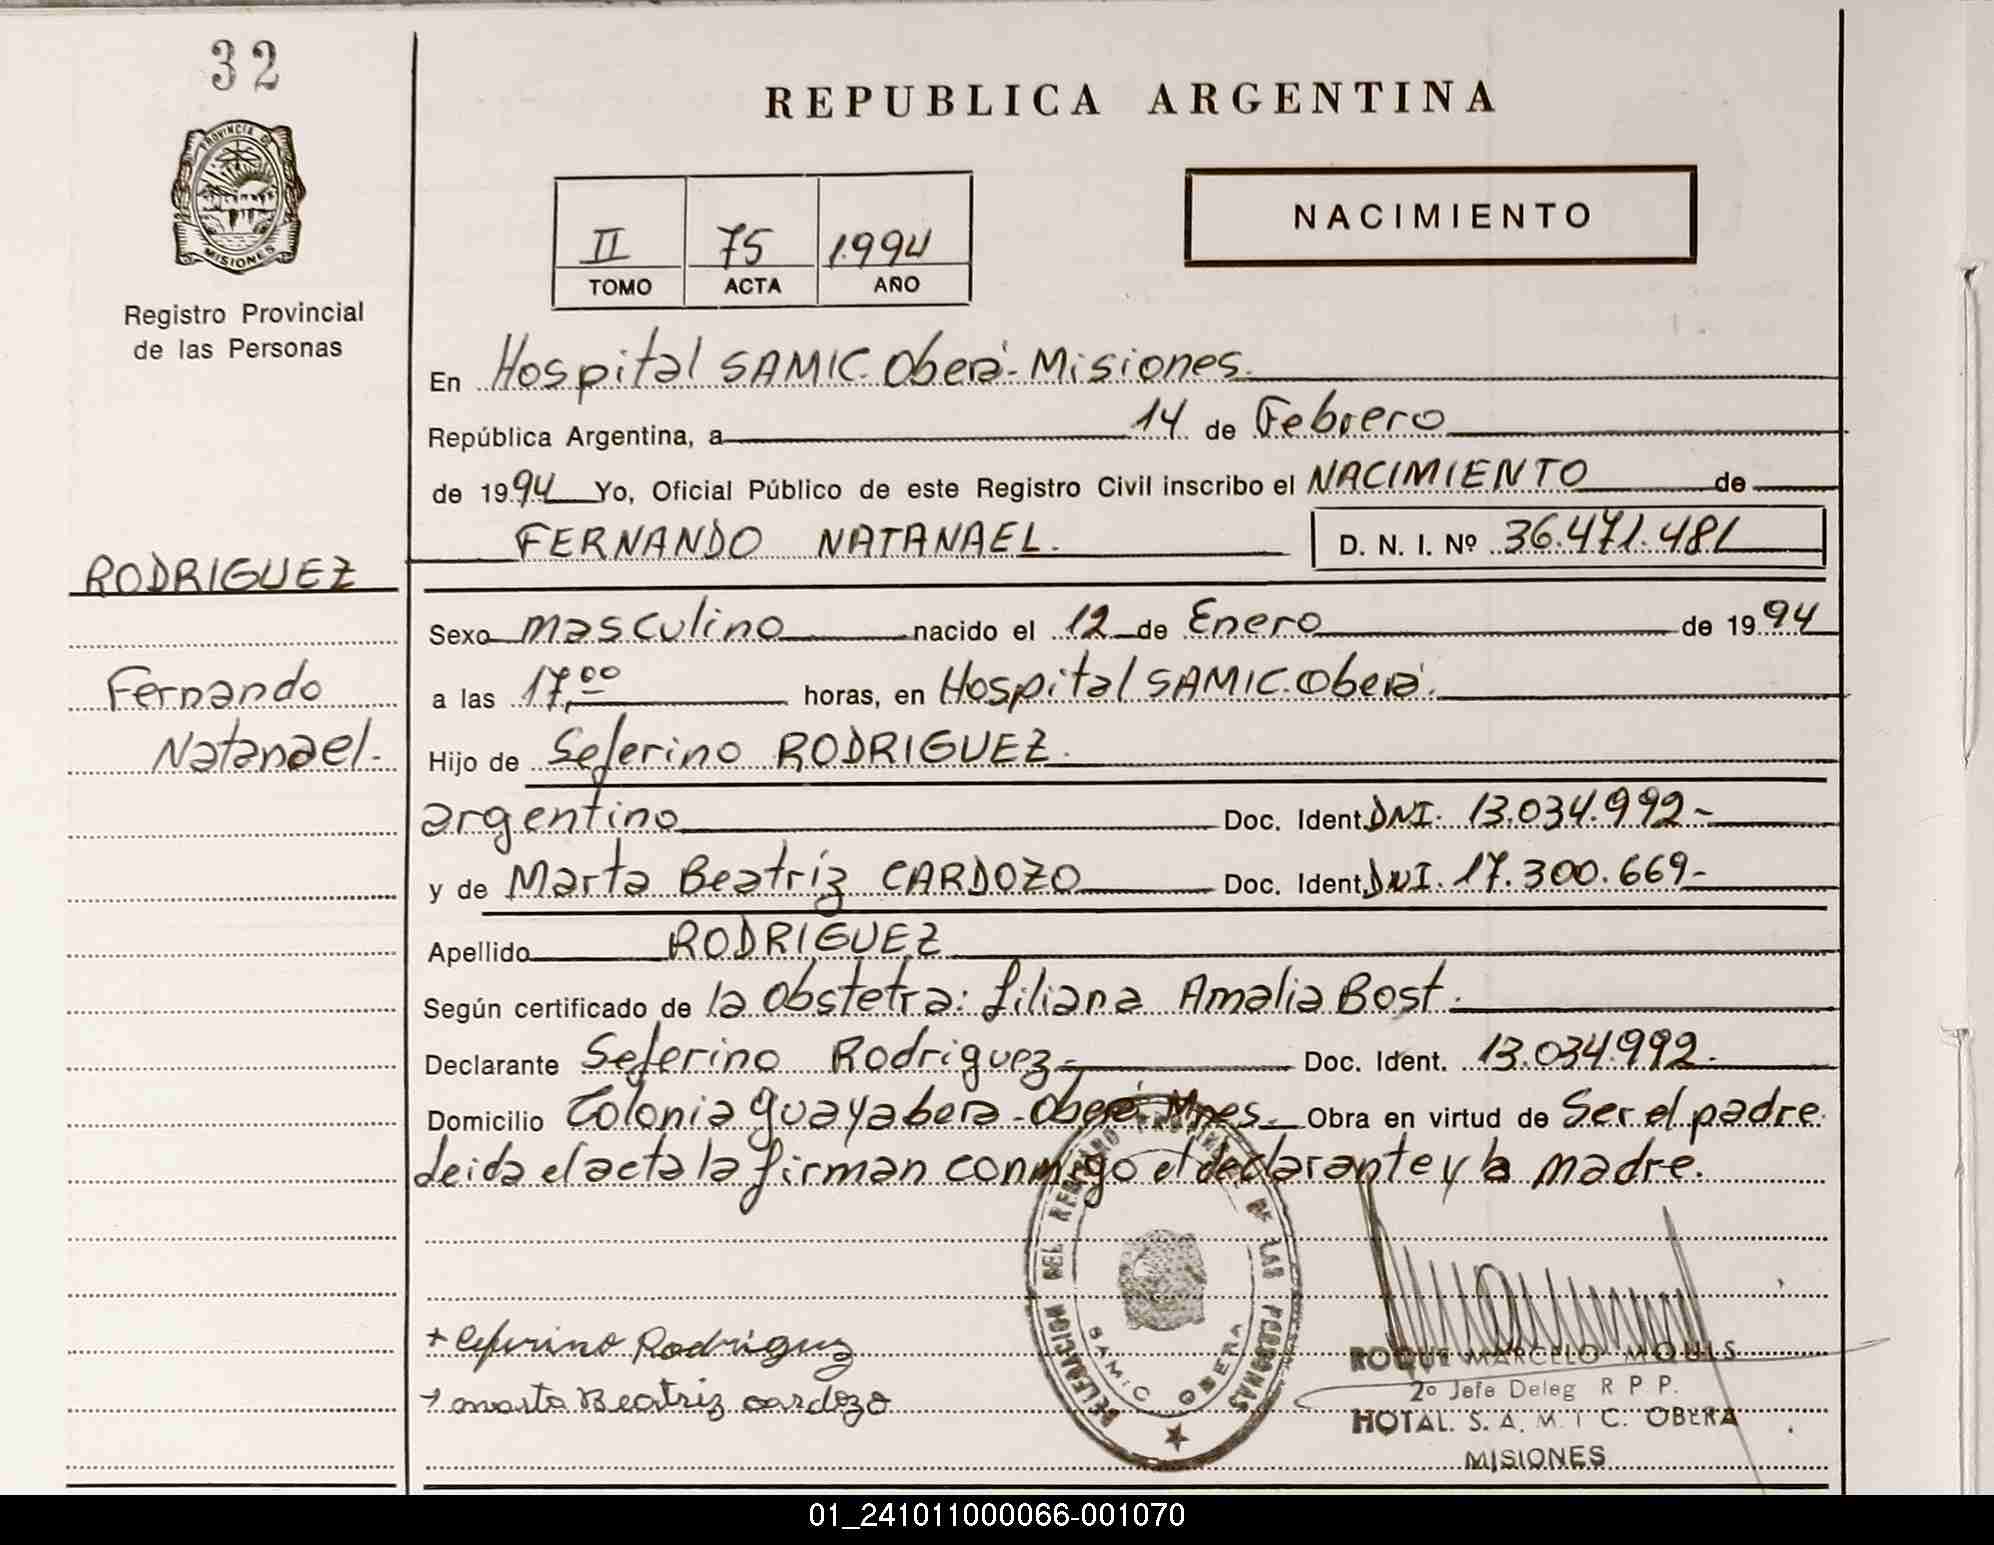 32
REPUBLICA ARGENTINA
PROVINCIA DE
MISIONES
Registro Provincial
de las Personas
II 75 1.994
TOMO ACTA AÑO
NACIMIENTO
En Hospital SAMIC. Oberá - Misiones.
República Argentina, a 14 de Febrero
de 1994 Yo, Oficial Público de este Registro Civil inscribo el NACIMIENTO de
FERNANDO NATANAEL. D. N. I. Nº 36.471.481
RODRIGUEZ
Sexo masculino nacido el 12 de Enero de 1994
Fernando
a las 17,00 horas, en Hospital SAMIC. Oberá.
Natanael.-
Hijo de Seferino RODRIGUEZ.
argentino Doc. Ident. DNI. 13.034.992-
y de Marta Beatríz CARDOZO Doc. Ident. DNI. 17.300.669-
Apellido RODRIGUEZ
Según certificado de la obstetra: Liliana Amalia Bost.
Declarante Seferino Rodriguez- Doc. Ident. 13.034.992.
Domicilio Colonia Guayabera - Oberá Mnes. Obra en virtud de Ser el padre.
Leida el acta la firman conmigo el declarante y la madre.
+ Ceferino Rodriguez
+ marta Beatriz cardozo
DELEGACION DEL REGISTRO PROVINCIAL DE LAS PERSONAS
SAMIC OBERA
ROQUE MARCELO MOUIS
2º Jefe Deleg R P P.
HOTAL. S. A. M. I C. OBERA
MISIONES
01_241011000066-001070